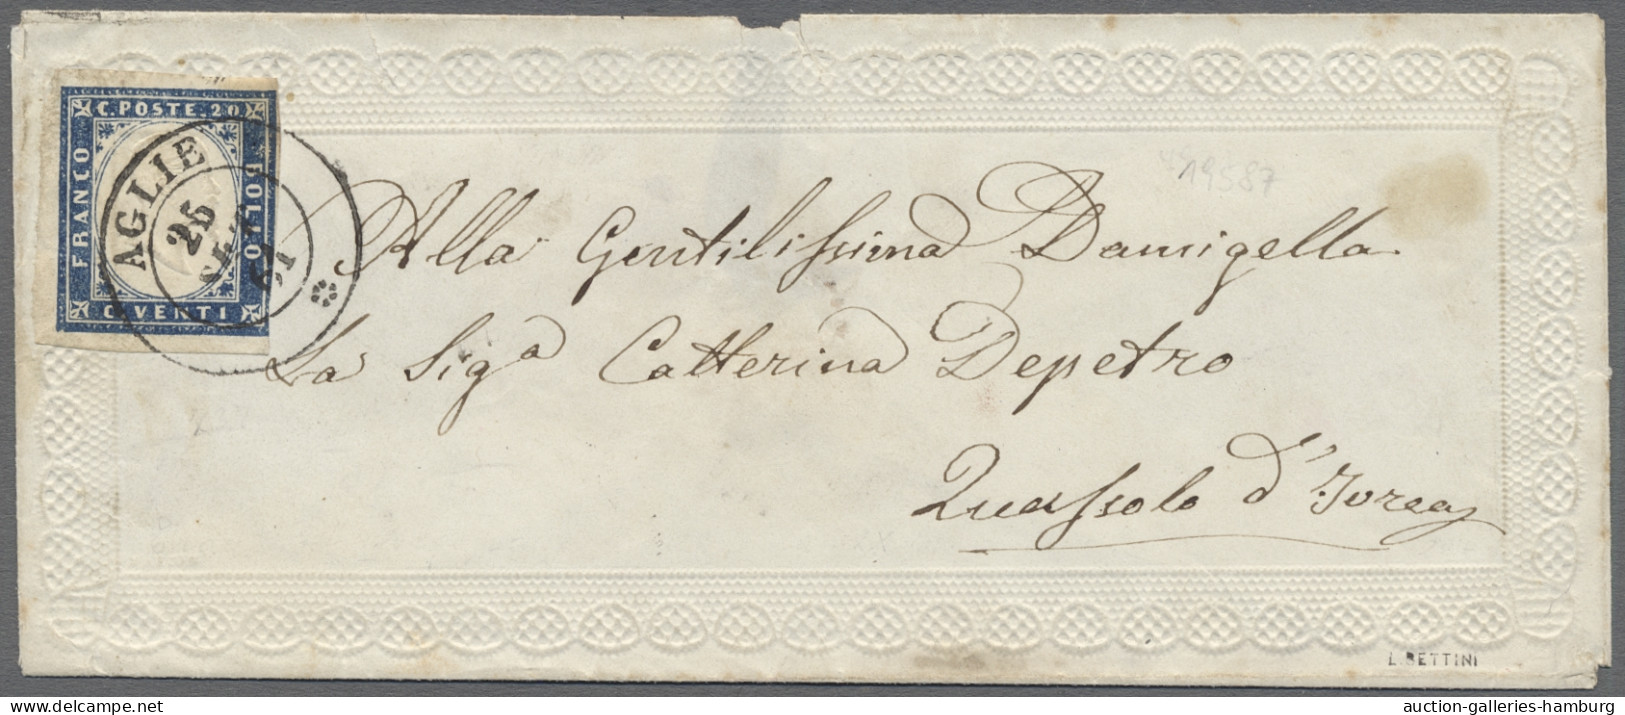 C. POSTE 20
FRANCO
BOLLO
C. VENTI
AGLIE
25
SET
61
19587
Alla Gentilissima Damigella
La Sig.a Catterina Depetro
Quassolo d'Ivrea
L. BETTINI
auction-galleries-hamburg